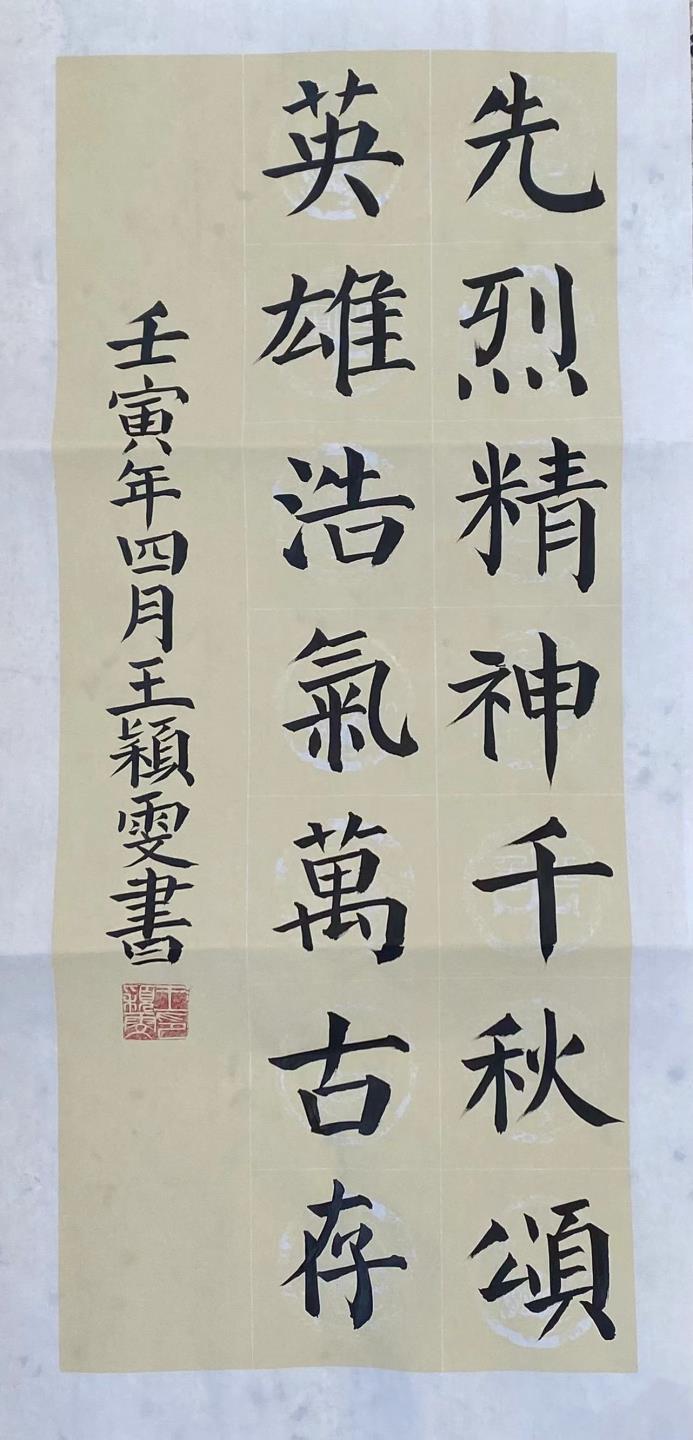 先烈精神千秋頌
英雄浩氣萬古存
壬寅年四月王穎雯書
王穎雯印